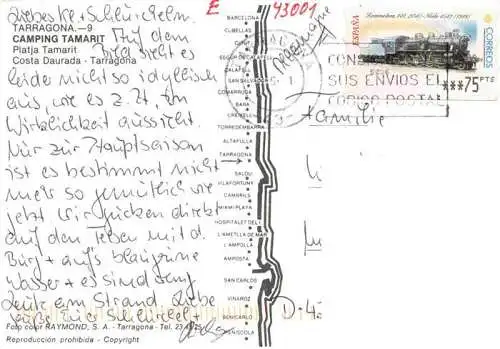 E
43001
TARRAGONA.—9
CAMPING TAMARIT
Platja Tamarit
Costa Daurada - Tarragona
Auf dem
Bild sieht es
leider nicht so idyllisch
aus, wie es z.Zt. in
Wirklichkeit aussieht.
Nur zur Hauptsaison
ist es bestimmt nicht
mehr so gemütlich wie
jetzt. Wir gucken direkt
auf den Felsen mit d.
Burg + auf's blaugrüne
Wasser + es sind
Leute am Strand. Liebe
Grüße Eure
Foto color RAYMOND, S. A. - Tarragona - Tel.
Reproducción prohibida - Copyright
BARCELONA
CUBELLAS
CUNIT
CALAFELL
SAN SALVADOR
COMARRUGA
BARA
CREIXELL
TORREDEMBARRA
ALTAFULLA
TARRAGONA
SALOU
VILAFORTUNY
CAMBRILS
MIAMI PLAYA
HOSPITALET DEL I.
L'AMETLLA DE MAR
L'AMPOLLA
AMPOSTA
SAN CARLOS
VINAROZ
BENICARLO
PEÑISCOLA
ESPAÑA
CORREOS
***75 PTE
CONS
SUS ENVIOS EL
CODIGO POSTAL
Familie
D-4